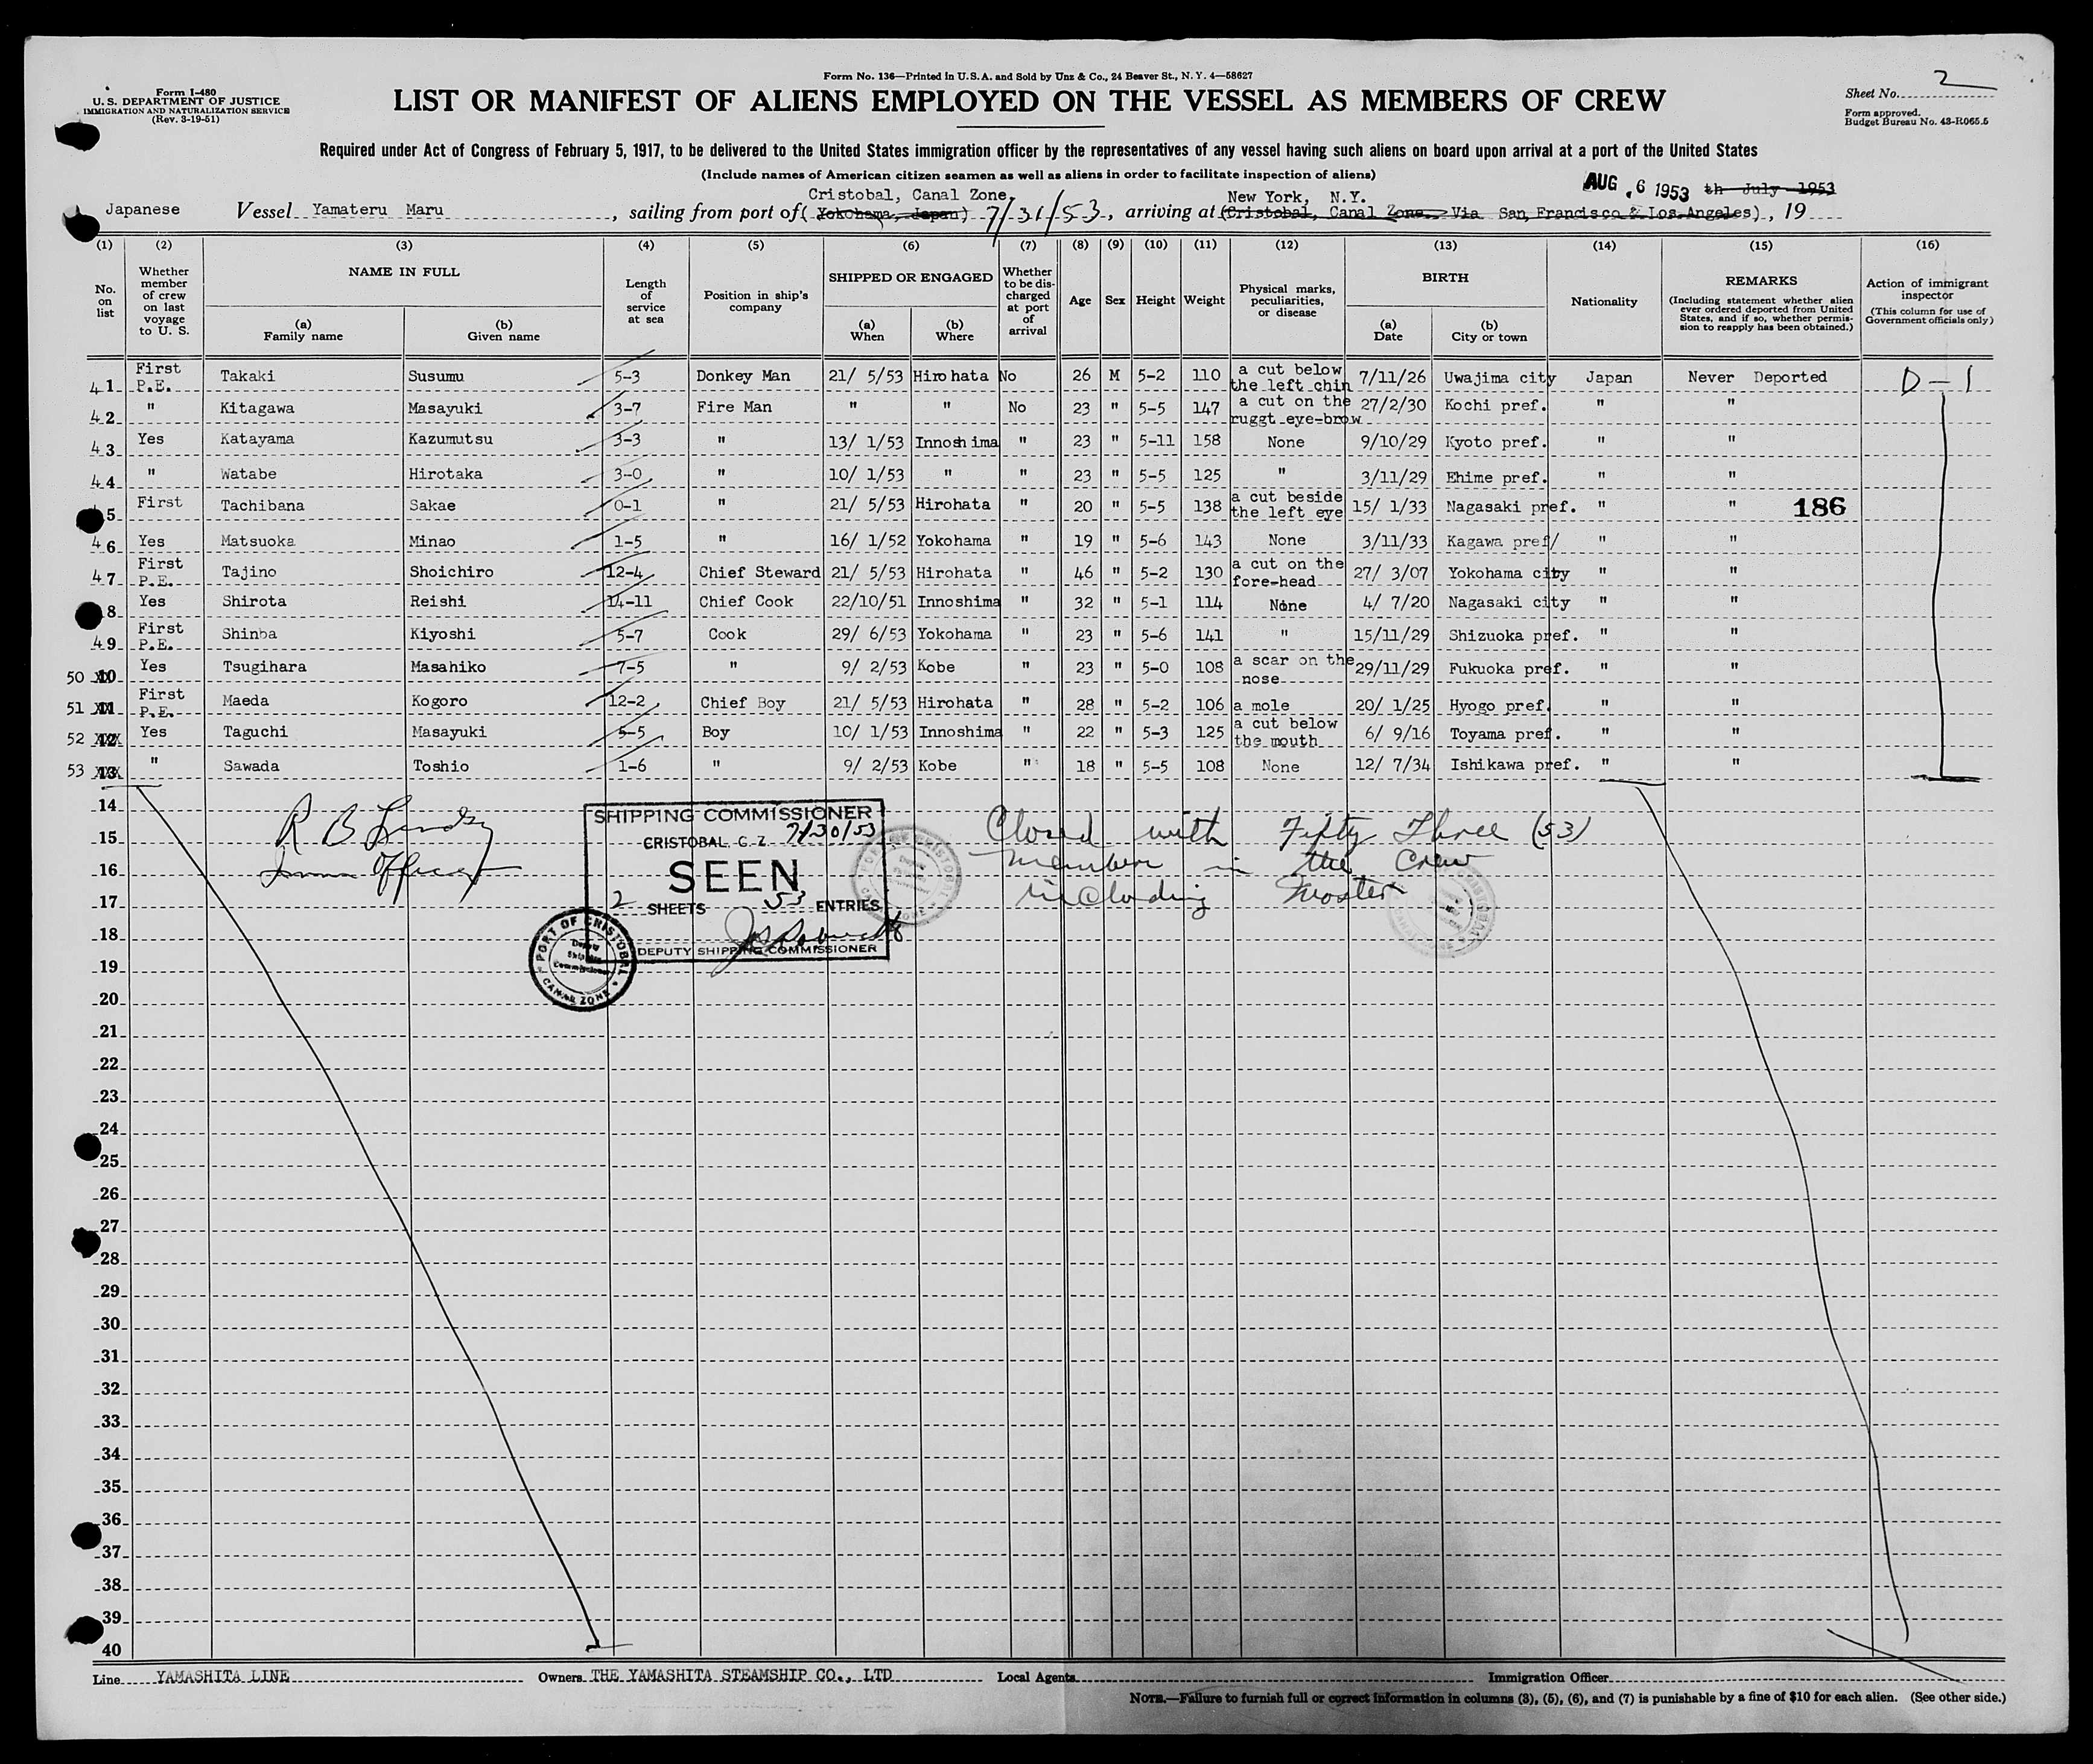 Form No. 136—Printed in U.S.A. and Sold by Unz & Co., 24 Beaver St., N.Y. 4—58627
Form I-480
U. S. DEPARTMENT OF JUSTICE
IMMIGRATION AND NATURALIZATION SERVICE
(Rev. 3-19-51)
LIST OR MANIFEST OF ALIENS EMPLOYED ON THE VESSEL AS MEMBERS OF CREW
Sheet No. 2
Form approved.
Budget Bureau No. 43-R065.5
Required under Act of Congress of February 5, 1917, to be delivered to the United States immigration officer by the representatives of any vessel having such aliens on board upon arrival at a port of the United States
(Include names of American citizen seamen as well as aliens in order to facilitate inspection of aliens)
Cristobal, Canal Zone, New York, N.Y. AUG 6 1953 th July 1953
Japanese Vessel Yamateru Maru, sailing from port of (Yokohama, Japan) 7/31/53, arriving at (Cristobal, Canal Zone. Via San Francisco & Los Angeles), 19
(1) (2) (3) (4) (5) (6) (7) (8) (9) (10) (11) (12) (13) (14) (15) (16)
No. on list
Whether member of crew on last voyage to U. S.
NAME IN FULL
(a) Family name
(b) Given name
Length of service at sea
Position in ship's company
SHIPPED OR ENGAGED
(a) When
(b) Where
Whether to be discharged at port of arrival
Age
Sex
Height
Weight
Physical marks, peculiarities, or disease
BIRTH
(a) Date
(b) City or town
Nationality
REMARKS
(Including statement whether alien ever ordered deported from United States, and if so, whether permission to reapply has been obtained.)
Action of immigrant inspector
(This column for use of Government officials only)
41 First P.E. Takaki Susumu 5-3 Donkey Man 21/ 5/53 Hirohata No 26 M 5-2 110 a cut below the left chin 7/11/26 Uwajima city Japan Never Deported D-1
42 " Kitagawa Masayuki 3-7 Fire Man " " No 23 " 5-5 147 a cut on the ruggt eye-brow 27/2/30 Kochi pref. " "
43 Yes Katayama Kazumutsu 3-3 " 13/ 1/53 Innoshima " 23 " 5-11 158 None 9/10/29 Kyoto pref. " "
44 " Watabe Hirotaka 3-0 " 10/ 1/53 " " 23 " 5-5 125 " 3/11/29 Ehime pref. " "
5 First Tachibana Sakae 0-1 " 21/ 5/53 Hirohata " 20 " 5-5 138 a cut beside the left eye 15/ 1/33 Nagasaki pref. " " 186
46 Yes Matsuoka Minao 1-5 " 16/ 1/52 Yokohama " 19 " 5-6 143 None 3/11/33 Kagawa pref/ " "
47 First P.E. Tajino Shoichiro 12-4 Chief Steward 21/ 5/53 Hirohata " 46 " 5-2 130 a cut on the fore-head 27/ 3/07 Yokohama city " "
8 Yes Shirota Reishi 14-11 Chief Cook 22/10/51 Innoshima " 32 " 5-1 114 None 4/ 7/20 Nagasaki city " "
49 First P.E. Shinba Kiyoshi 5-7 Cook 29/ 6/53 Yokohama " 23 " 5-6 141 " 15/11/29 Shizuoka pref. " "
50 10 Yes Tsugihara Masahiko 7-5 " 9/ 2/53 Kobe " 23 " 5-0 108 a scar on the nose 29/11/29 Fukuoka pref. " "
51 11 First P.E. Maeda Kogoro 12-2 Chief Boy 21/ 5/53 Hirohata " 28 " 5-2 106 a mole 20/ 1/25 Hyogo pref. " "
52 12 Yes Taguchi Masayuki 5-5 Boy 10/ 1/53 Innoshima " 22 " 5-3 125 a cut below the mouth 6/ 9/16 Toyama pref. " "
53 13 " Sawada Toshio 1-6 " 9/ 2/53 Kobe " 18 " 5-5 108 None 12/ 7/34 Ishikawa pref. " "
14
15
16
17
18
19
20
21
22
23
24
25
26
27
28
29
30
31
32
33
34
35
36
37
38
39
40
R B
Officer
SHIPPING COMMISSIONER
CRISTOBAL C. Z. 7/30/53
SEEN
2 SHEETS 53 ENTRIES
DEPUTY SHIPPING COMMISSIONER
PORT OF CRISTOBAL
Deputy Shipping Commissioner
CANAL ZONE
Closed with Fifty Three (53)
member in the Crew
including Master
Line YAMASHITA LINE Owners THE YAMASHITA STEAMSHIP CO., LTD Local Agents Immigration Officer
NOTE.—Failure to furnish full or correct information in columns (3), (5), (6), and (7) is punishable by a fine of $10 for each alien. (See other side.)